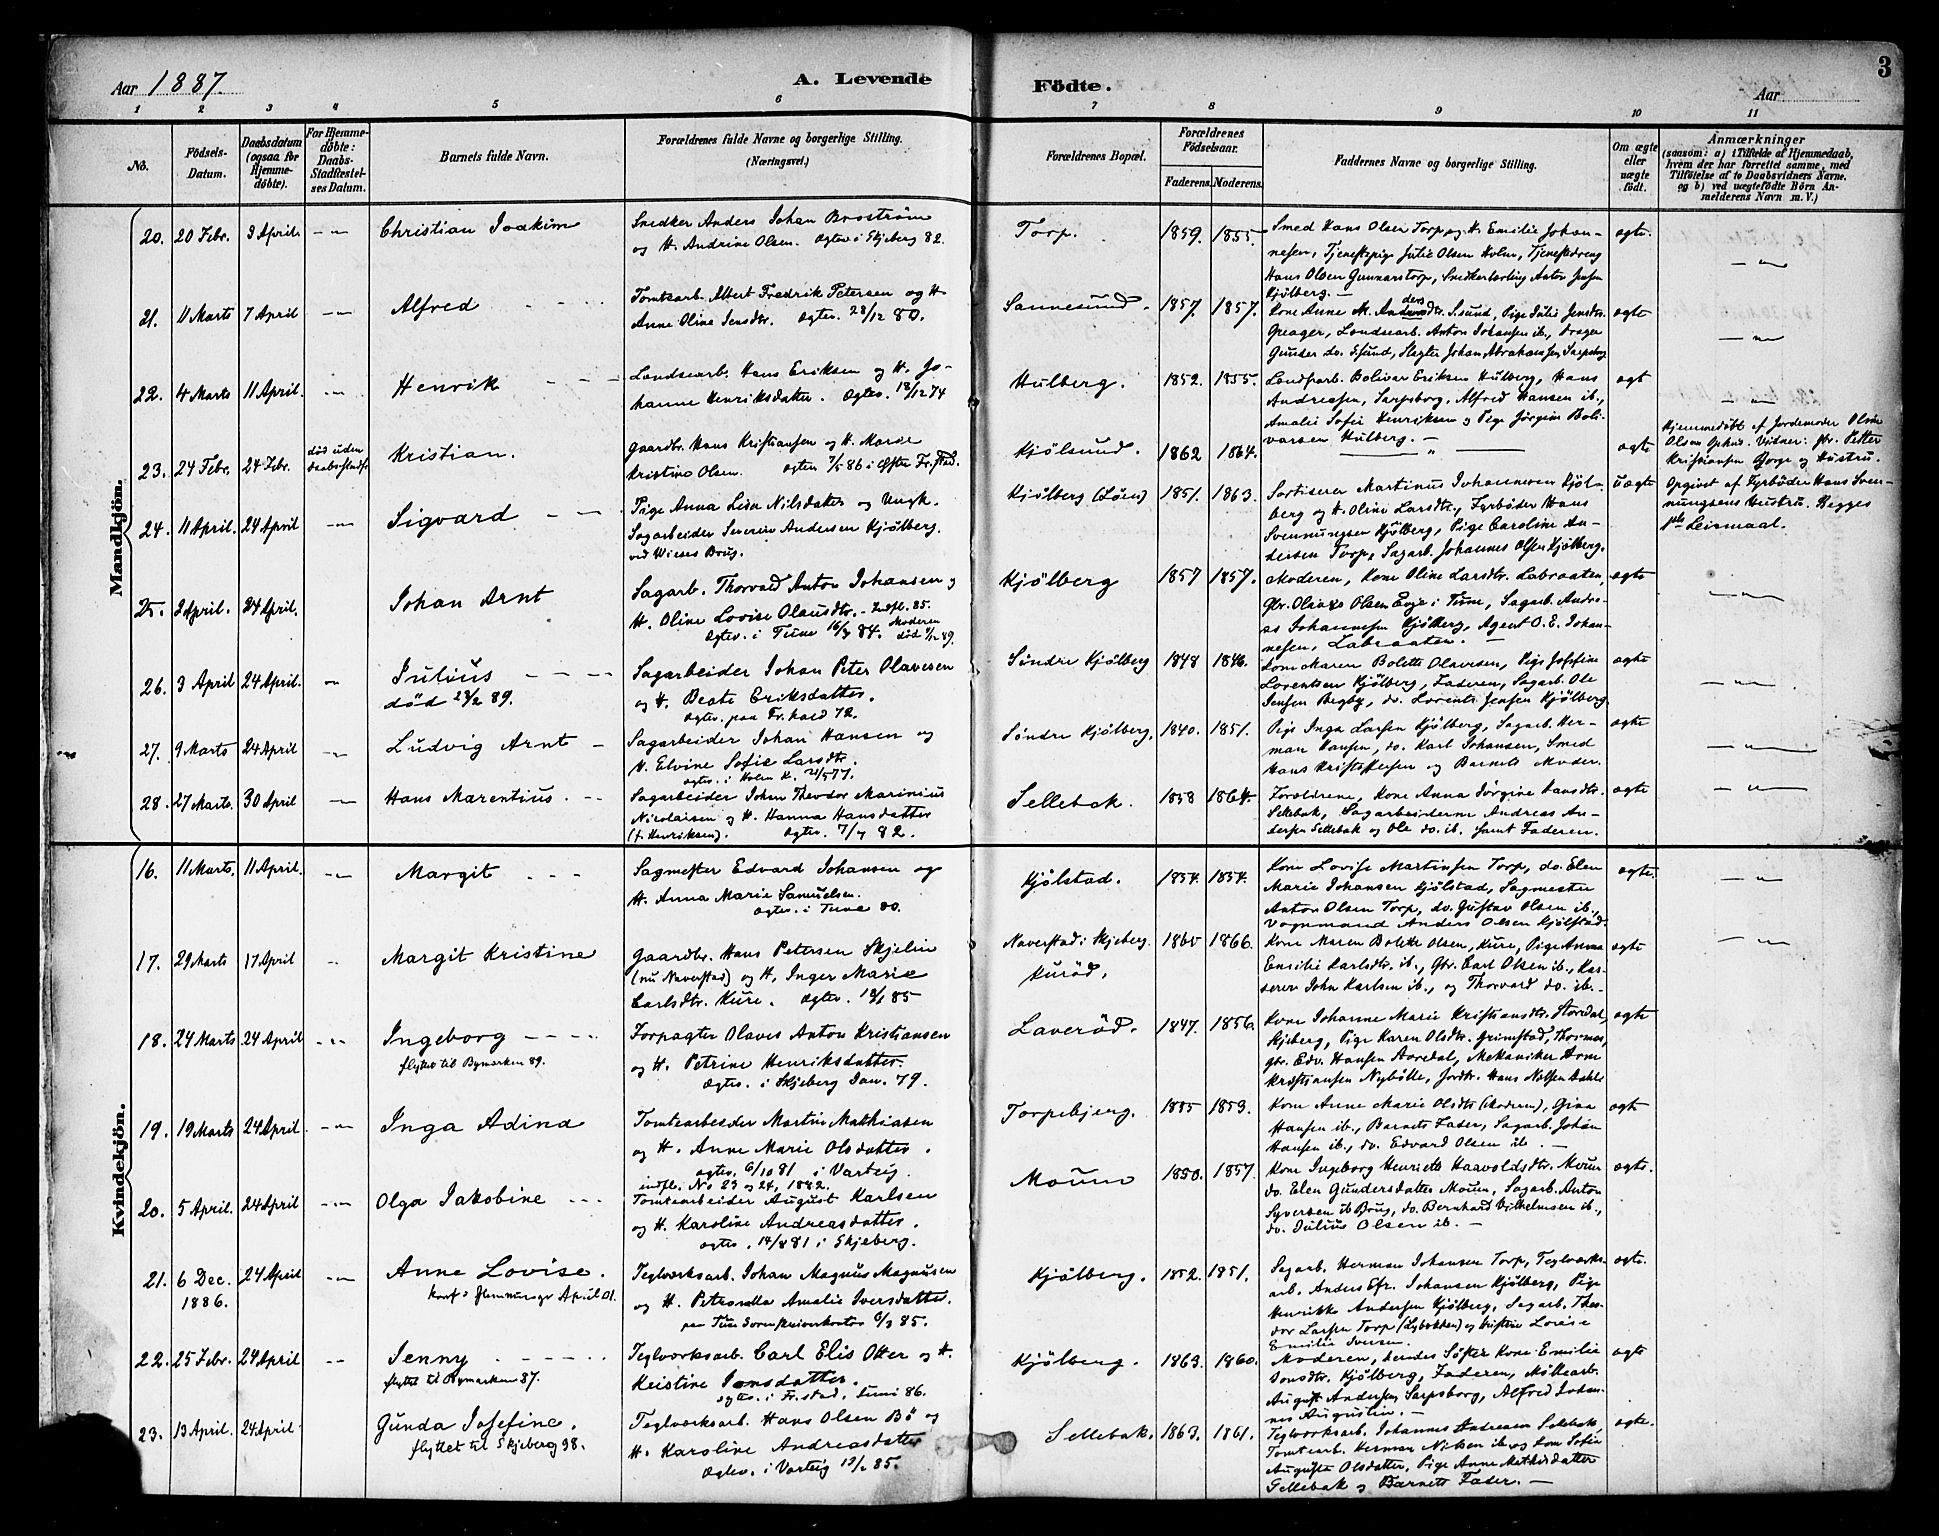 Aar 1887.
A. Levende Födte.
3
Aar
1 2 3 4 5 6 7 8 9 10 11
No.
Födsels-Datum.
Daabsdatum (ogsaa for Hjemmedöbte).
For Hjemmedöbte: Daabs-Stadfæstelses Datum.
Barnets fulde Navn.
Forældrenes fulde Navne og borgerlige Stilling. (Næringsvei.)
Forældrenes Bopæl.
Forældrenes Födselsaar.
Faderens. Moderens.
Faddernes Navne og borgerlige Stilling.
Om ægte eller uægte födt.
Anmærkninger
(saasom: a) i Tilfælde af Hjemmedaab, hvem der har forrettet samme, med Tilföielse af to Daabsvidners Navne. og b) ved uægtefödte Börn Anmelderens Navn m. V.)
Mandkjön.
20. 20 Febr. 3 April. Christian Joakim
Snedker Anders Johan Broström
og H. Andrine Olsen. Ægtev. i Skjeberg 82.
Torp. 1859. 1855.
Smed Hans Olsen Torp og H. Emilie Johan-
nesen, Tjenestepige Julie Olsen Holm, Tjenestedreng
Hans Olsen Gunnarstorp, Snedkerlærling Anton Jensen
Kjölberg. ægte.
21. 11 Marts 7 April Alfred
Tomtearb. Albert Fredrik Petersen og H.
Anne Oline Jensdtr. Ægtev. 28/12 80.
Sannesund. 1857. 1857.
Kone Anne M. Andersdtr. S.sund, Pige Julie Jensdtr.
Greager, Landsearb. Anton Johansen ib., Drager
Gunder do. S.sund, Slagter Johan Abrahamsen Sarpsborg
ægte
22. 4 Marts 11 April. Henrik
Landsearb. Hans Eriksen og H. Jo-
hanne Henriksdatter. Ægtev. 18/12 74
Hulberg. 1852. 1855.
Landsarb. Bolivar Eriksen Hulberg, Hans
Andreasen, Sarpsborg, Alfred Hansen ib.,
Amalie Sofie Henriksen og Pige Jörgine Boli-
varsen Hulberg. ægt
23. 24 Febr. 24 Febr. död uden Daabsstadf. Kristian.
Gaardbr. Hans Kristiansen og H. Marie
Kristine Olsen. Ægtev 7/5 86 i Öster Fr.stad.
Kjölsund. 1862 1864. ægte
Hjemmedöbt af Jordemoder Oline
Olsen Ophus. Vidner: gbr. Petter
Kristiansen Borge og Hustru.
24. 11 April. 24 April Sigvard
Pige Anna Lisa Nilsdatter og Ungk.
Sagarbeider Severin Andersen Kjölberg.
ved Wieses Brug.
Kjölberg (Löen) 1851. 1863.
Sortiserer Martinus Johannesen Kjöl-
berg og H. Oline Larsdtr, Fyrböder Hans
Svennungsen Kjölberg, Pige Caroline An-
dersen Torp, Sagarb. Johannes Olsen Kjölberg.
Uægte
Opgivet af Fyrböder Hans Sven-
nungsens Hustru. Begges
1ste Leiermaal.
25. 2 April. 24 April. Johan Arnt
Sagarb. Thorvald Anton Johansen og
H. Oline Lovise Olausdtr. Indfl. 85.
Ægtev. i Tune 84. Moderen död 89.
Kjölberg 1857 1857.
Moderen, Kone Oline Larsdtr. Labraaten,
Gbr. Olaves Olsen Enge i Tune, Sagarb. Andre-
as Johannesen Kjölberg, Agent O. E. Johan-
nesen, Labraaten. ægte
26. 3 April 24 April. Julius död 23/2 89.
Sagarbeider Johan Peter Olavesen
og H. Beate Eriksdatter.
Ægtev. paa Fr.hald 72.
Söndre Kjölberg 1848 1846.
Kone Maren Bolette Olavesen, Pige Josefine
Lorentsen Kjölberg, Faderen, Sagarb. Ole
Jensen Begby, do. Lorents Jensen Kjölberg.
ægte
27. 9 Marts 24 April Ludvig Arnt
Sagarbeider Johan Hansen og
H. Elvine Sofie Larsdtr.
ægtev. i Holm K. 77.
Söndre Kjölberg. 1840. 1851.
Pige Inga Larsen Kjölberg, Sagarb. Her-
man Hansen, do. Karl Johansen, Smed
Hans Kristoffersen og Barnets Moder. ægte
28. 27 Marts. 30 April Hans Marentius.
Sagarbeider Johan Theodor Marinius
Nicolaisen og H. Hanna Hansdatter
(f. Henriksen). Ægtev. 7/7 82.
Sellebak. 1858 1864.
Forældrene, Kone Anna Jörgine Hansdtr.
Sellebak, Sagarbeiderne Andreas An-
dersen Sellebak og Ole do. ib. samt Faderen.
ægte
Kvindekjön.
16. 11 Marts. 11 April. Margit
Sagmester Edvard Johansen og
H. Anna Marie Samuelsen.
Ægtev. i Tune 80.
Kjölstad. 1854. 1854.
Kone Lovise Martinsen Torp, do. Elen
Marie Johansen Kjölstad, Sagmester
Anton Olsen Torp, do. Gustav Olsen ib.,
Vognmand Anders Olsen Kjölstad. ægte.
17. 29 Marts 17 April Margit Kristine
Gaardbr. Hans Petersen Skjelin
(nu Naverstad) og H. Inger Marie
Carlsdtr. Kure. Ægtev. 85
Naverstad i Skjeberg. Kuröd. 1860 1866.
Kone Maren Bolette Olsen, Kure, Pige Anna
Emilie Karlsdtr. ib., Gbr. Carl Olsen ib., Kas-
serer John Karlsen ib., og Thorvard do. ib.
ægte
18. 24 Marts 24 April Ingeborg
flyttet til Bymarken 89.
Forpagter Olaves Anton Kristiansen
og H. Petrine Henriksdatter.
Ægtev. i Skjeberg Jan. 79.
Laveröd. 1847. 1856.
Kone Johanne Marie Kristiansdtr. Stordal,
Skjeberg, Pige Karen Olsdtr. Grimstad, Thosnes,
gbr. Edv. Hansen Aaredal, Mekaniker Arne
Kristiansen Nybölle, Jordbr. Hans Nilsen Dahle
ægte
19. 19 Marts 24 April. Inga Adina
Tomtearbeider Martin Mathiasen
og H. Anne Marie Olsdatter.
ægtev. 6/10 81 i Varteig.
indfl. No 23 og 24, 1882.
Torpebjerg. 1855 1853.
Kone Anne Marie Olsdtr (Moderen), Gina
Hansen ib., Barnets Fader, Sagarb. Johan
Hansen ib., do. Edvard Olsen ib. ægte
20. 5 April. 24 April Olga Jakobine
Tomtearbeider August Karlsen
og H. Karoline Andreasdatter.
ægtev. 14/8 81 i Skjeberg.
Moum 1850. 1857.
Kone Ingeborg Henriette Haavoldsdtr. Moum
do. Elen Gundersdatter Moum, Sagarb. Anton
Syversen ib Brug, do. Bernhard Vilhelmsen ib.,
do. Julius Olsen ib. ægte.
21. 6 Dec. 1886. 24 April Anne Lovise.
konf. i Glemminge April 01.
Teglværksarb. Johan Magnus Magnusen
og H. Petronille Amalie Iversdatter.
paa Tune Sorenskriverkontor 85.
Kjölberg. 1852. 1851.
Sagarb. Herman Johansen Torp, Teglværks-
arb. Anders Efr. Johansen Kjölberg, Pige
Henrikke Andersen Kjölberg, Sagarb. Theo-
dor Larsen Torp (Lybakken) og Kristine Lovise
Emilie Iversen. ægte.
22. 25 Febr. 24 April Jenny
flyttet til Bymarken 87.
Teglværksarb. Carl Elis Otter og H.
Kristine Jonsdatter.
ægtev. i Fr.stad, Juni 86.
Kjölberg. 1863. 1860.
Moderen, hendes Söster Kone Emilie
Jonsdtr. Kjölberg, Faderen, Möllearb.
August Andersen Sarpsborg, Alfred Johan-
nes Augustin. ægte
23. 13 April. 24 April. Gunda Josefine.
flyttet til Skjeberg 98.
Teglværksarb. Hans Olsen Bö og
H. Karoline Andreasdatter
Ægtev. i Varteig 85.
Sellebak. 1863. 1861.
Teglværksarb. Johannes Andresen Sellebak,
Tomtearb. Herman Nilsen ib. og Kone Sofie
Augusta Olsdatter, Pige Anne Mathisdatter
Sellebak og Barnets Fader. ægte.